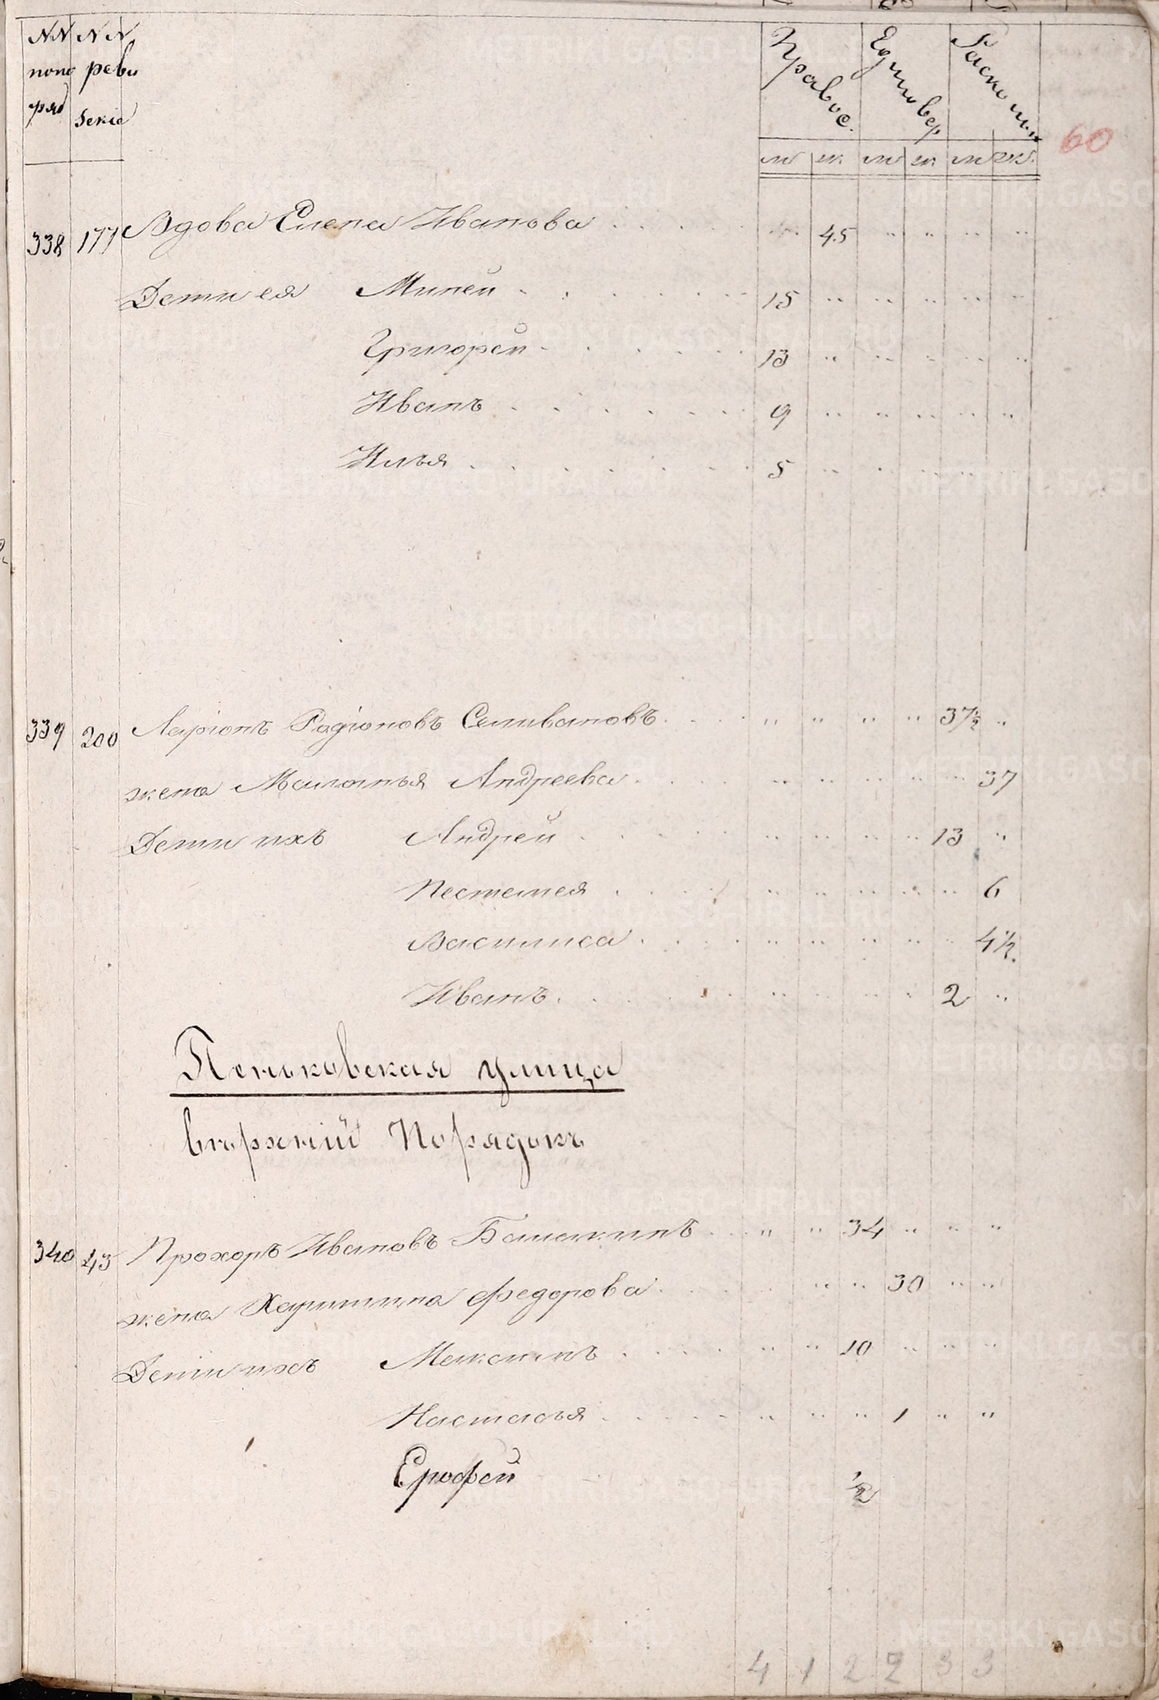 NN NN
попо реви
ряд зскіе
Православ. Единовер Раскольн
м ж. м ж. м ж.
60
338 177 Вдова Елена Иванова 45
Дети ея Миней 15
Григорей 13
Иванъ 9
Илья 5
339 200 Ларіонъ Радіоновъ Селивановъ 37½
жена Маланья Андреева 37
Дети ихъ Андрей 13
Пестемея 6
Василиса 4½.
Иванъ 2
Пеньковская улица
верхній Порядокъ
340 43 Прохоръ Ивановъ 34
жена Харитина Федорова 30
Дети ихъ Максимъ 10
Настасья 1
Ерофей ½
4 1 2 2 3 3
METRIKI.GASO-URAL.RU